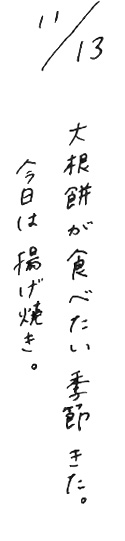 11/13
大根餅が食べたい季節きた。
今日は揚げ焼き。